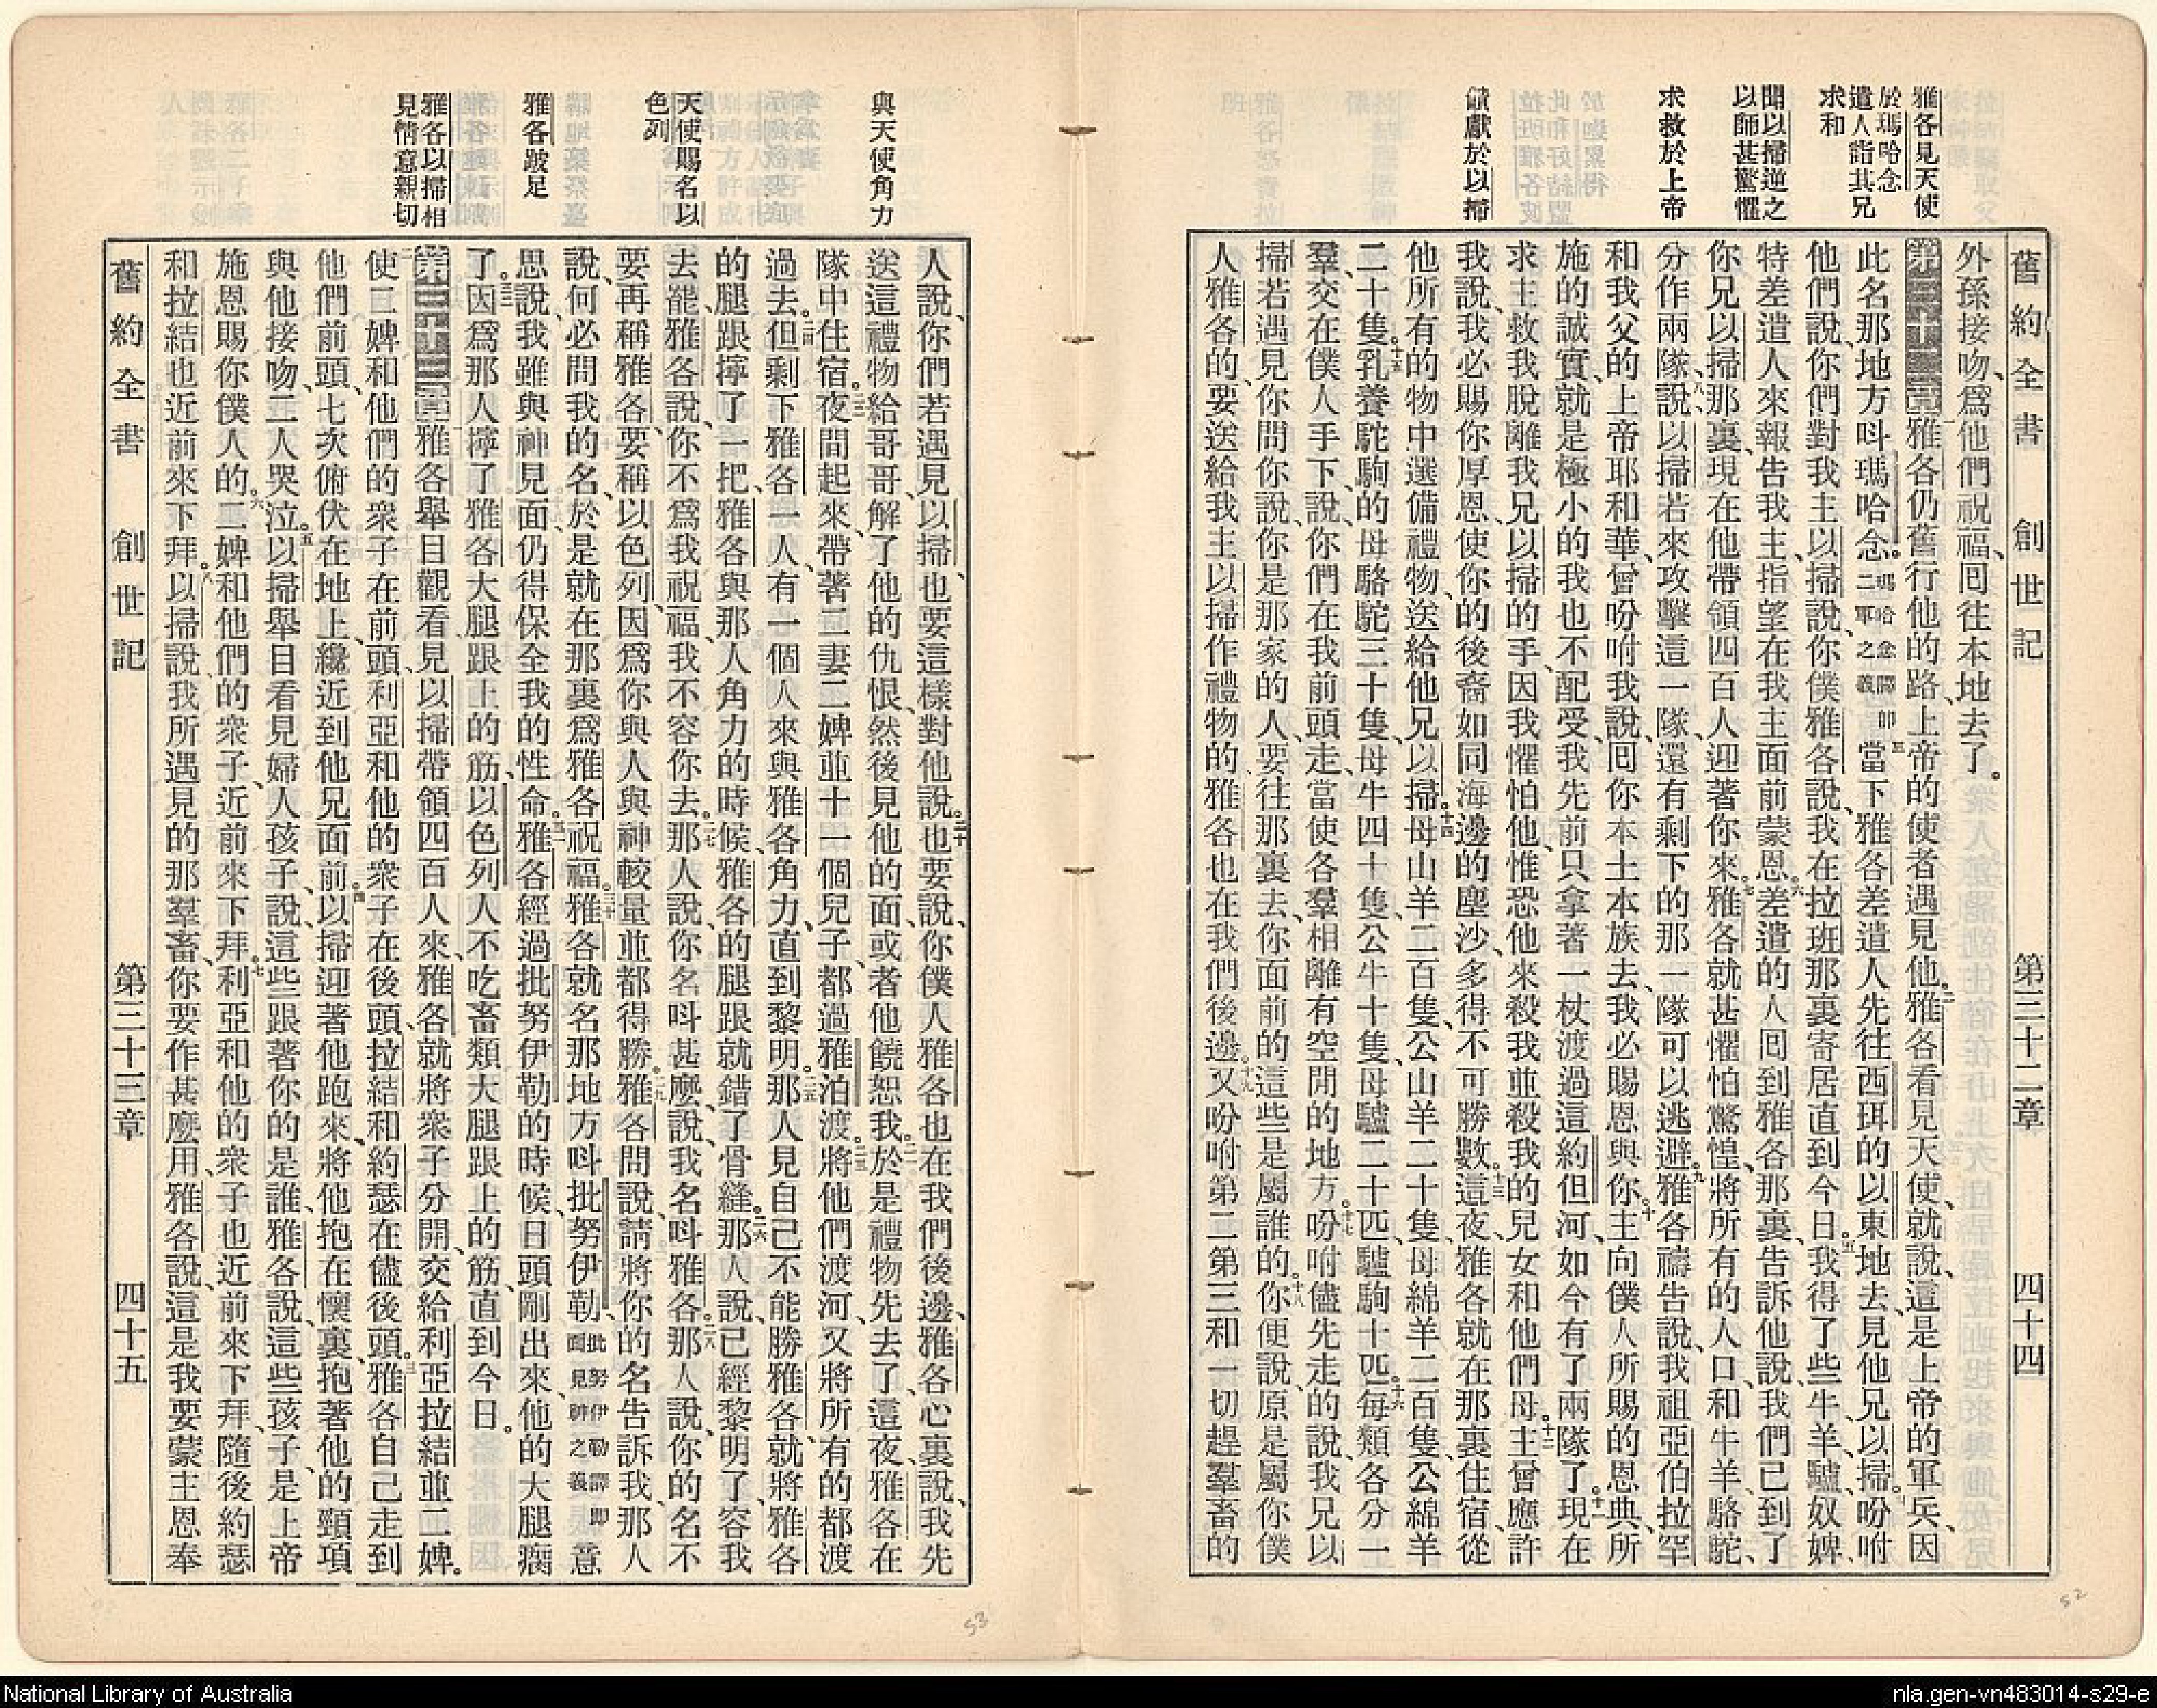 舊約全書 創世記 第三十二章 四十四
雅各見天使
於瑪哈念
遣人詣其兄
求和
聞以掃逆之
以師甚驚懼
求救於上帝
餽獻於以掃
外孫接吻、爲他們祝福、囘往本地去了。
第三十二章一雅各仍舊行他的路、上帝的使者遇見他。二雅各看見天使、就說、這是上帝的軍兵、因
此名那地方呌瑪哈念。瑪哈念譯卽二軍之義三當下、雅各差遣人先往西珥的以東地去、見他兄以掃。四吩咐
他們說、你們對我主以掃說、你僕雅各說、我在拉班那裏寄居直到今日。五我得了些牛、羊、驢、奴婢、
特差遣人來報告我主、指望在我主面前蒙恩。六差遣的人囘到雅各那裏、告訴他說、我們已到了
你兄以掃那裏、現在他帶領四百人迎著你來。七雅各就甚懼怕驚惶、將所有的人口、和牛羊駱駝、
分作兩隊、八說、以掃若來攻擊這一隊、還有剩下的那一隊可以逃避。九雅各禱告說、我祖亞伯拉罕
和我父的上帝耶和華、曾吩咐我說、囘你本土本族去、我必賜恩與你。十主向僕人所賜的恩典、所
施的誠實、就是極小的我也不配受、我先前只拿著一杖渡過這約但河、如今有了兩隊了。十一現在
求主救我脫離我兄以掃的手、因我懼怕他、惟恐他來殺我、並殺我的兒女和他們母。十二主曾應許
我說、我必賜你厚恩、使你的後裔如同海邊的塵沙、多得不可勝數。十三這夜、雅各就在那裏住宿、從
他所有的物中選備禮物、送給他兄以掃。十四母山羊二百隻、公山羊二十隻、母綿羊二百隻、公綿羊
二十隻。十五乳養駝駒的母駱駝三十隻、母牛四十隻、公牛十隻、母驢二十匹、驢駒十匹。十六每類各分一
羣、交在僕人手下、說、你們在我前頭走、當使各羣相離有空閒的地方。十七吩咐儘先走的說、我兄以
掃若遇見你問你說、你是那家的人、要往那裏去、你面前的這些是屬誰的。十八你便說、原是屬你僕
人雅各的、要送給我主以掃作禮物的、雅各也在我們後邊。十九又吩咐第二第三和一切趕羣畜的
與天使角力
天使賜名以
色列
雅各跛足
雅各以掃相
見情意親切
人說、你們若遇見以掃、也要這樣對他說。二十也要說、你僕人雅各也在我們後邊、雅各心裏說、我先
送這禮物給哥哥、解了他的仇恨、然後見他的面、或者他饒恕我。二一於是禮物先去了、這夜雅各在
隊中住宿。二二夜間起來、帶著二妻二婢並十一個兒子、都過雅泊渡。二三將他們渡河、又將所有的都渡
過去。二四但剩下雅各一人、有一個人來與雅各角力、直到黎明。二五那人見自己不能勝雅各、就將雅各
的腿跟擰了一把、雅各與那人角力的時候、雅各的腿跟就錯了骨縫。二六那人說、已經黎明了、容我
去罷、雅各說、你不爲我祝福、我不容你去。二七那人說、你名呌甚麼、說、我名呌雅各。二八那人說、你的名不
要再稱雅各、要稱以色列、因爲你與人與神較量並都得勝。二九雅各問說、請將你的名告訴我、那人
說、何必問我的名、於是就在那裏爲雅各祝福。三十雅各就名那地方呌批努伊勒、批努伊勒譯卽面見神之義意
思說、我雖與神見面、仍得保全我的性命。三一雅各經過批努伊勒的時候、日頭剛出來、他的大腿瘸
了。三二因爲那人擰了雅各大腿跟上的筋、以色列人不吃畜類大腿跟上的筋、直到今日。
第三十三章一雅各舉目觀看、見以掃帶領四百人來、雅各就將衆子分開、交給利亞拉結並二婢。
二使二婢和他們的衆子在前頭、利亞和他的衆子在後頭、拉結和約瑟在儘後頭。三雅各自己走到
他們前頭、七次俯伏在地上、纔近到他兄面前。四以掃迎著他跑來、將他抱在懷裏、抱著他的頸項
與他接吻、二人哭泣。五以掃舉目看見婦人孩子、說、這些跟著你的是誰、雅各說、這些孩子、是上帝
施恩賜你僕人的。六二婢和他們的衆子、近前來下拜。七利亞和他的衆子也近前來下拜、隨後約瑟
和拉結也近前來下拜。八以掃說、我所遇見的那羣畜、你要作甚麼用、雅各說、這是我要蒙主恩奉
舊約全書 創世記 第三十三章 四十五
52
53
National Library of Australia
nla.gen-vn483014-s29-e